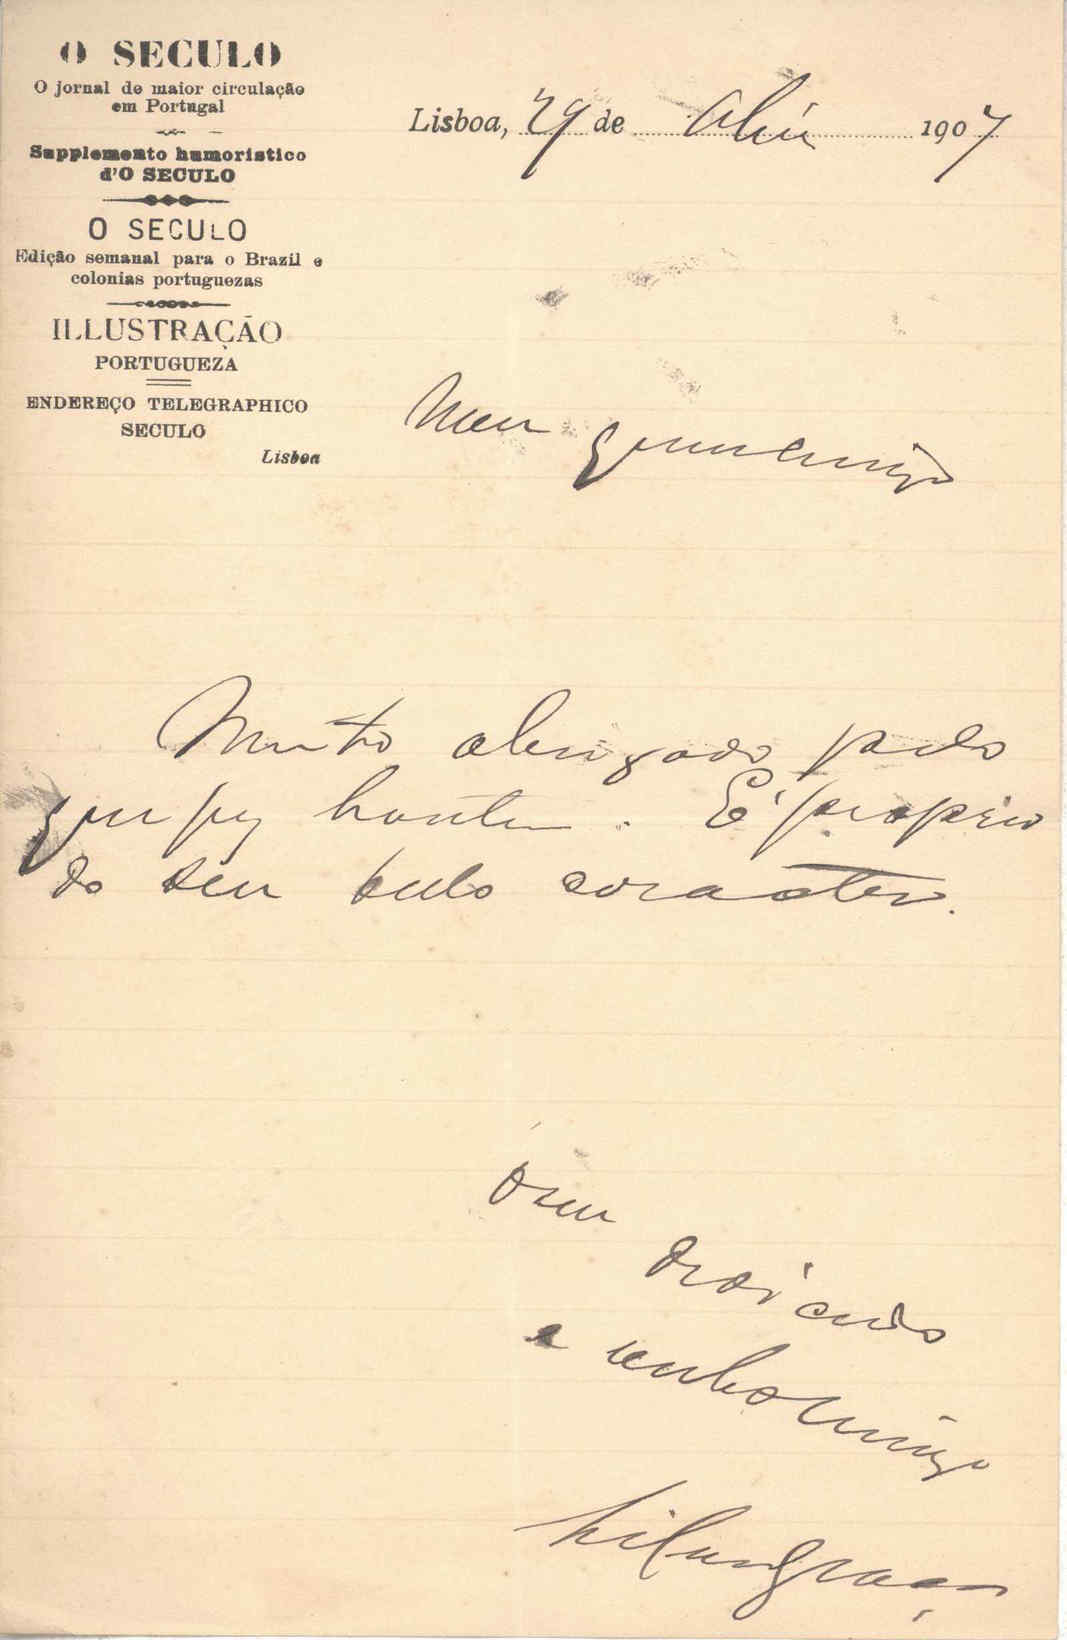 O SECULO
O jornal de maior circulação
em Portugal
Supplemento humoristico
d'O SECULO
O SECULO
Edição semanal para o Brazil e
colonias portuguezas
ILLUSTRAÇÃO
PORTUGUEZA
ENDEREÇO TELEGRAPHICO
SECULO
Lisboa
Lisboa, 29 de Abril 1907
Meu
Muito obrigado pelo
que fez hontem. É proprio
do seu bello caracter.
O seu
dedicado
e